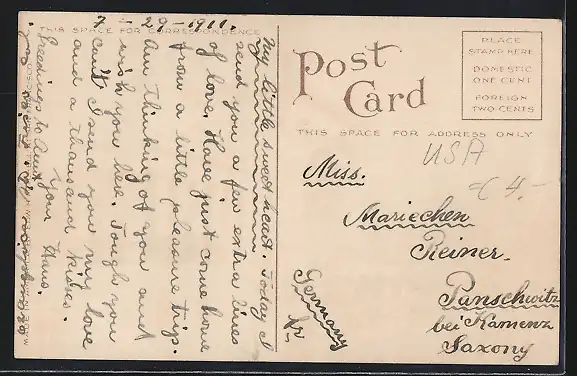 7 - 29 - 1911.
THIS SPACE FOR CORRESPONDENCE
My little sweetheart. Today I
send you a few extra lines
of love. Have just come home
from a little pleasure trip.
Am thinking of you and
wish you here. Tough you
can't I send you my love
and a thousand kisses.
Your Hans.
Greetings to Aunt
Post
Card
PLACE
STAMP HERE
DOMESTIC
ONE CENT
FOREIGN
TWO CENTS
THIS SPACE FOR ADDRESS ONLY
USA
=( 4.-
Miss.
Mariechen
Reiner.
Panschwitz
bei Kamenz
Saxony
Germany